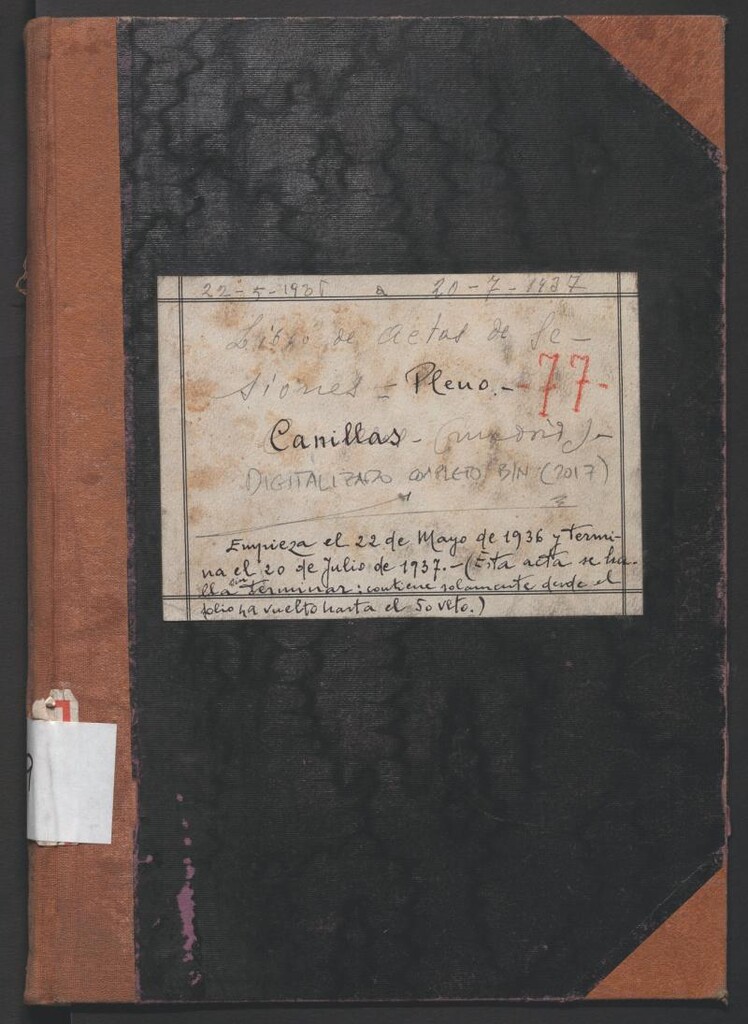 22-5-1936 a 20-7-1937
Libro de actas de Se-
siones - Pleno. - 77 -
Canillas - (Madrid) -
DIGITALIZADO COMPLETO B/N (2017)
Empieza el 22 de Mayo de 1936 y termi-
na el 20 de Julio de 1937. - (Esta acta se ha-
lla sin terminar: contiene solamente desde el
folio vuelto hasta el 50 vlto.)
9